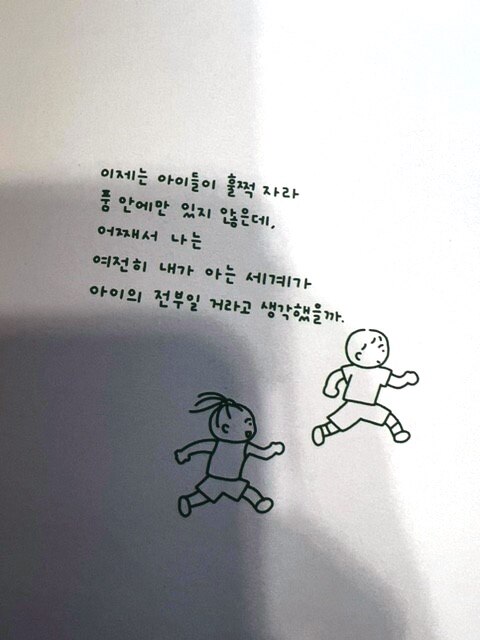 이제는 아이들이 훌쩍 자라
품 안에만 있지 않은데,
어째서 나는
여전히 내가 아는 세계가
아이의 전부일 거라고 생각했을까.